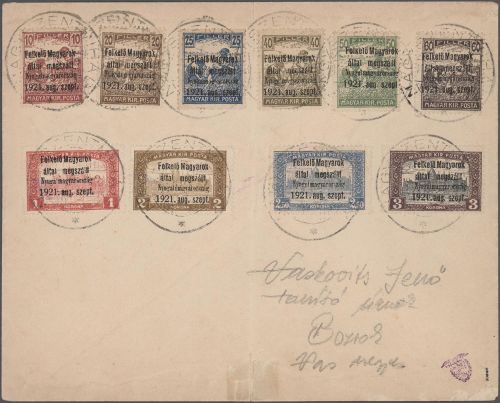 10 FILLER 10
20 FILLER 20
25 FILLER 25
40 FILLER 40
50 FILLER 50
60 FILLER 60
Felkelő Magyarok
által megszállt
Nyugatmagyarország
1921. aug. szept.
MAGYAR KIR. POSTA
Felkelő Magyarok
által megszállt
Nyugatmagyarország
1921. aug. szept.
MAGYAR KIR. POSTA
Felkelő Magyarok
által megszállt
Nyugatmagyarország
1921. aug. szept.
MAGYAR KIR. POSTA
Felkelő Magyarok
által megszállt
Nyugatmagyarország
1921. aug. szept.
MAGYAR KIR. POSTA
Felkelő Magyarok
által megszállt
Nyugatmagyarország
1921. aug. szept.
MAGYAR KIR. POSTA
Felkelő Magyarok
által megszállt
Nyugatmagyarország
1921. aug. szept.
MAGYAR KIR. POSTA
MAGYAR KIR. POSTA
Felkelő Magyarok
által megszállt
Nyugatmagyarország
1921. aug. szept.
1 KORONA 1
MAGYAR KIR. POSTA
Felkelő Magyarok
által megszállt
Nyugatmagyarország
1921. aug. szept.
2 KORONA 2
MAGYAR KIR. POSTA
Felkelő Magyarok
által megszállt
Nyugatmagyarország
1921. aug. szept.
KORONA
MAGYAR KIR. POSTA
Felkelő Magyarok
által megszállt
Nyugatmagyarország
1921. aug. szept.
3 KORONA 3
Vaskovits Jenő
tanító
Bozsok
Vas megye